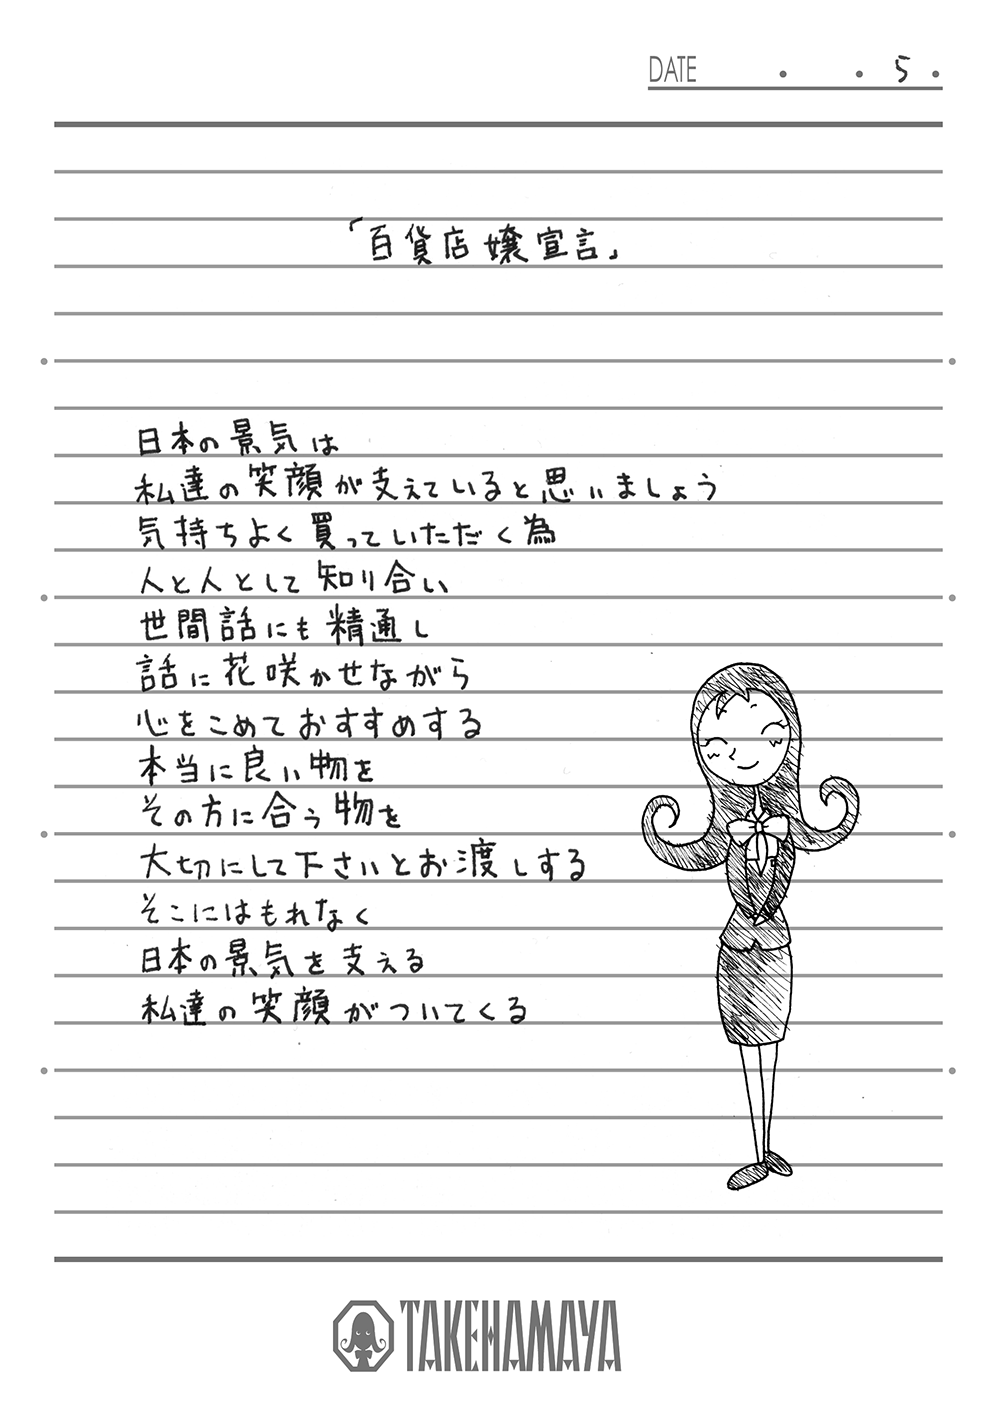 DATE ・ ・ 5 ・
「百貨店嬢宣言」
日本の景気は
私達の笑顔が支えていると思いましょう
気持ちよく買っていただく為
人と人として知り合い
世間話にも精通し
話に花咲かせながら
心をこめておすすめする
本当に良い物を
その方に合う物を
大切にして下さいとお渡しする
そこにはもれなく
日本の景気を支える
私達の笑顔がついてくる
TAKEHAMAYA